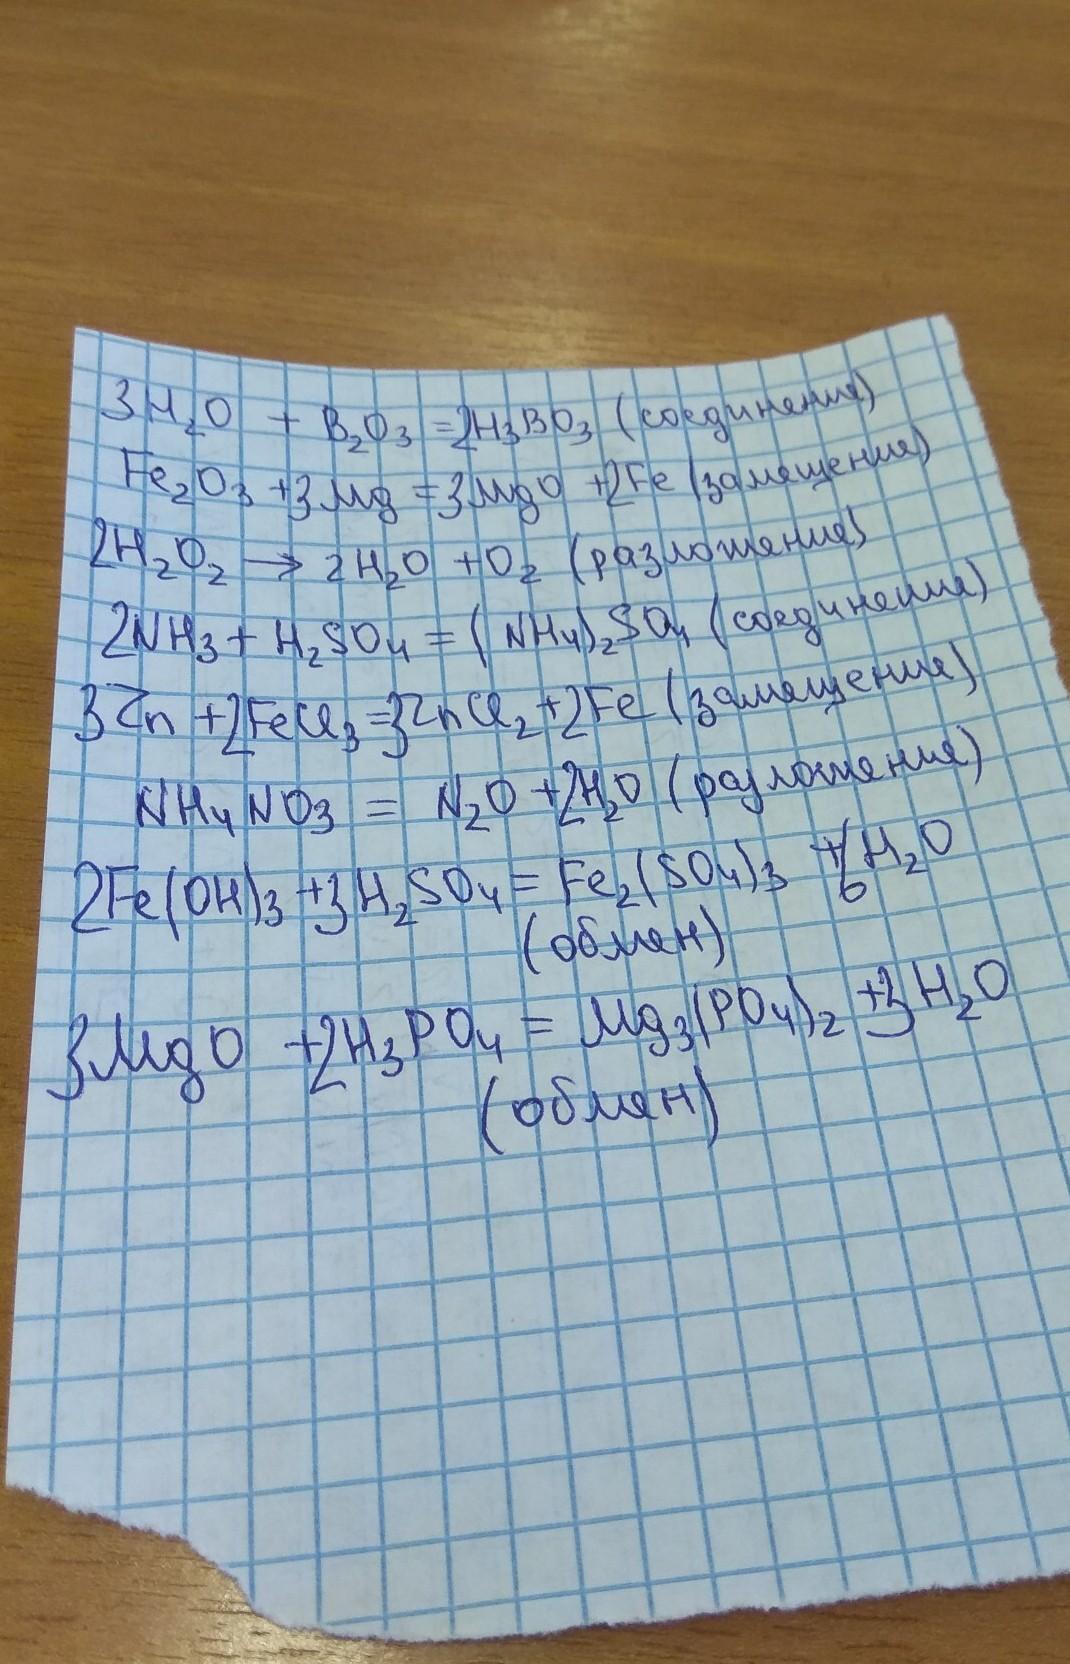 3H₂O + B₂O₃ = 2H₃BO₃ (соединения)
Fe₂O₃ + 3Mg = 3MgO + 2Fe (замещения)
2H₂O₂ → 2H₂O + O₂ (разложения)
2NH₃ + H₂SO₄ = (NH₄)₂SO₄ (соединения)
3Zn + 2FeCl₃ = 3ZnCl₂ + 2Fe (замещения)
NH₄NO₃ = N₂O + 2H₂O (разложения)
2Fe(OH)₃ + 3H₂SO₄ = Fe₂(SO₄)₃ + 6H₂O
(обмен)
3MgO + 2H₃PO₄ = Mg₃(PO₄)₂ + 3H₂O
(обмен)